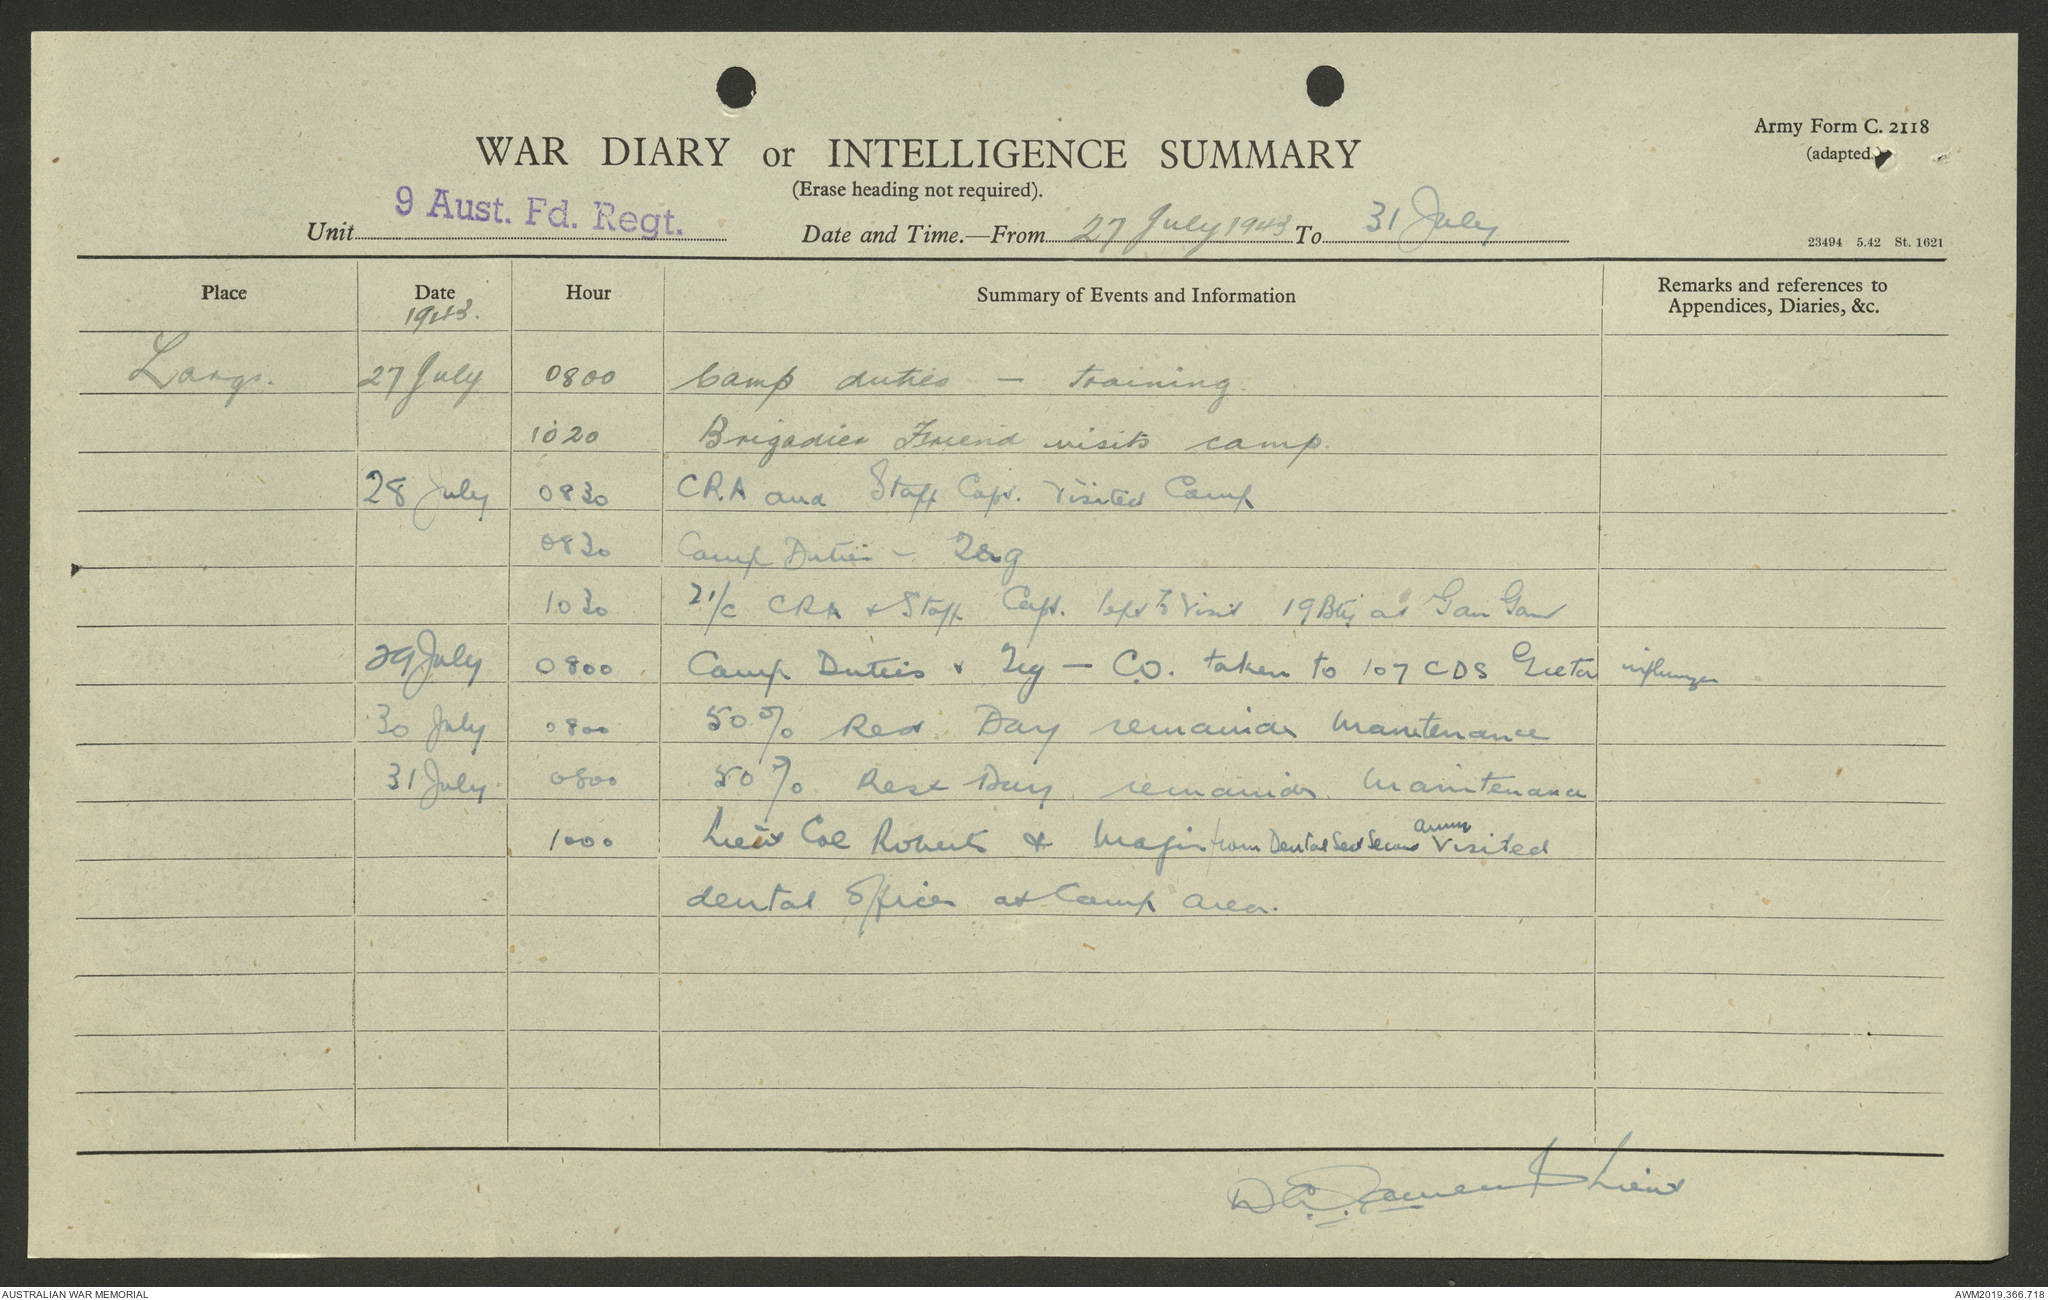 Army Form C. 2118
(adapted.)
WAR DIARY or INTELLIGENCE SUMMARY
(Erase heading not required).
Unit 9 Aust. Fd. Regt. Date and Time.—From 27 July 1943 To 31 July
23494 5.42 St. 1621
Place Date Hour Summary of Events and Information Remarks and references to
Appendices, Diaries, &c.
1943.
Largs. 27 July 0800 Camp duties — training
1020 Brigadier Friend visits camp.
28 July 0830 CRA and Staff Capt. Visited Camp
0830 Camp Duties - Trg
1030 2i/c CRA & Staff Capt. left to Visit 19 Bty at Gan Gan
29 July 0800 Camp Duties & Trg — C.O. taken to 107 CDS Greta influenza
30 July 0800 50% Rest Day remainder Maintenance
31 July 0800 50% Rest Day remainder Maintenance
1000 Lieut Col Roberts & Major from Dental Sect Second Army Visited
dental Officer at Camp area.
Lieut
AUSTRALIAN WAR MEMORIAL
AWM2019.366.718